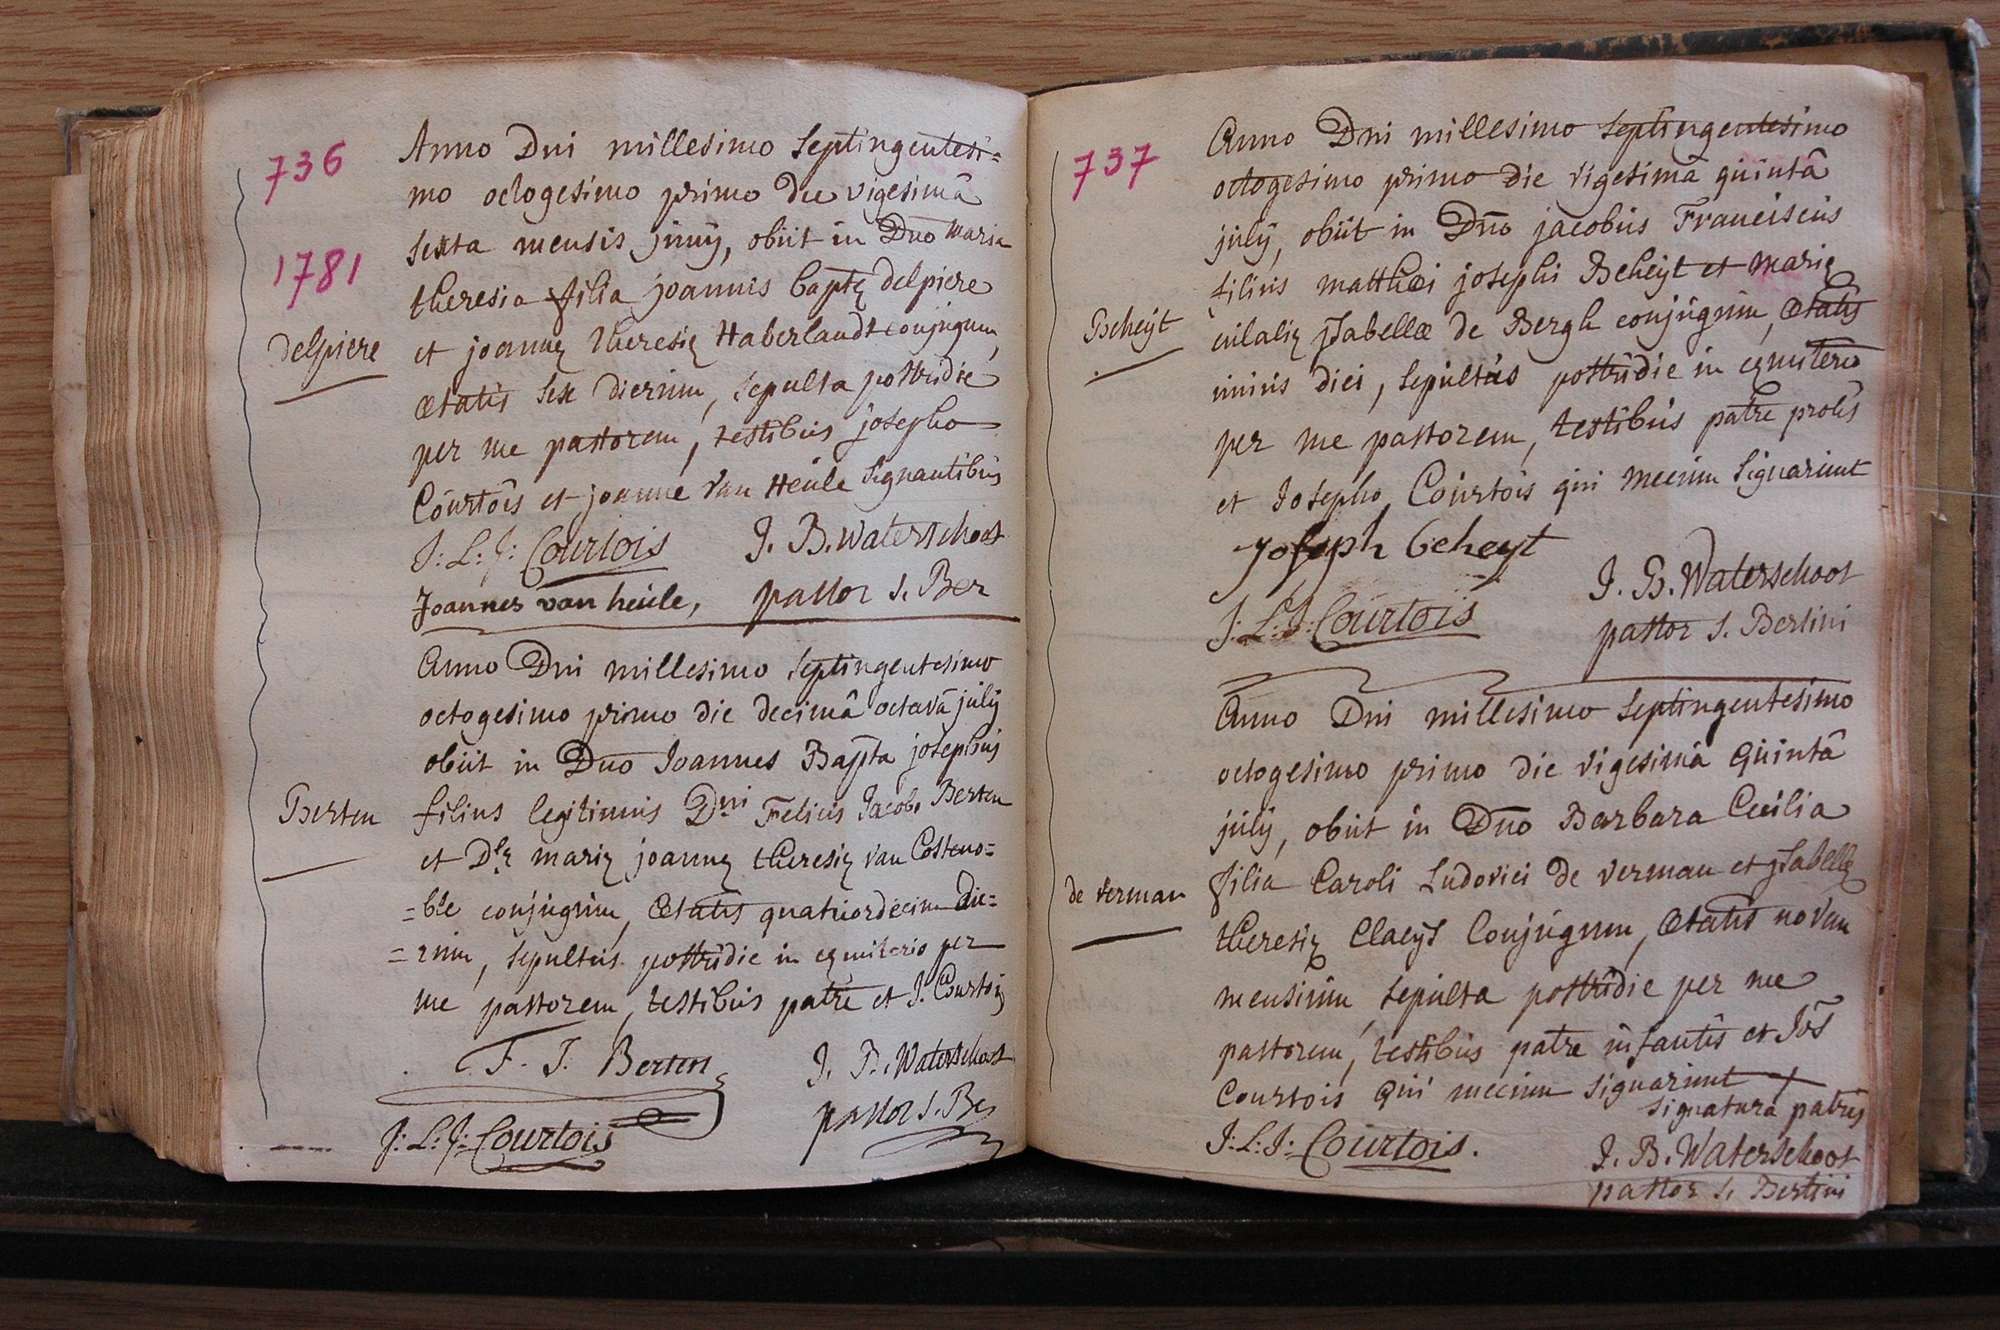 736
1781
Anno Dni millesimo septingentesi=
mo octogesimo primo die vigesimâ
sexta mensis junij, obiit in Dno Maria
theresia filia joannis baptę delpiere
et joannę theresię Haberlandt conjugum,
delpiere
ætatis sex dierum, sepulta postridie
per me pastorem, testibus josepho
Courtois et joanne van Heule signantibus
J: L: J: Courtois J. B. Waterschoot
Joannes van heule, pastor S. Ber
Anno Dni millesimo septingentesimo
octogesimo primo die decimâ octavâ julij
obiit in Dno Joannes Bapta josephus
Berten
filius legitimus Dni Felicis Jacobi Berten
et Dlę marię joannę theresię van Costeno=
=ble conjugum, Ætatis quatuordecim die=
=rum, sepultus postridie in cęmiterio per
me pastorem, testibus patre et J. Courtois
F. J. Berten J. B. Waterschoot
pastor S. Be
J: L: J: Courtois
737
Anno Dni millesimo septingentesimo
octogesimo primo die vigesimâ quintâ
julij, obiit in Dno jacobus Franciscus
filius matthæi josephi Beheijt et marię
Beheijt
eulalię jsabellæ de Bergh conjugum, ætatis
unius diei, sepultus postridie in cęmiterio
per me pastorem, testibus patre prolis
et Josepho Courtois qui mecum signarunt
Joseph beheyt
J. B. Waterschoot
J: L: J: Courtois
pastor S. Bertini
Anno Dni millesimo septingentesimo
octogesimo primo die vigesimâ quintâ
julij, obiit in Dno Barbara Cecilia
de verman
filia Caroli Ludovici de verman et jsabellę
theresię Claeys Conjugum, Ætatis novem
mensium, sepulta postridie per me
pastorem, testibus patre infantis et Jos
Courtois qui mecum signarunt +
signatura patris
J: L: J: Courtois.
J. B. Waterschoot
pastor S. Bertini